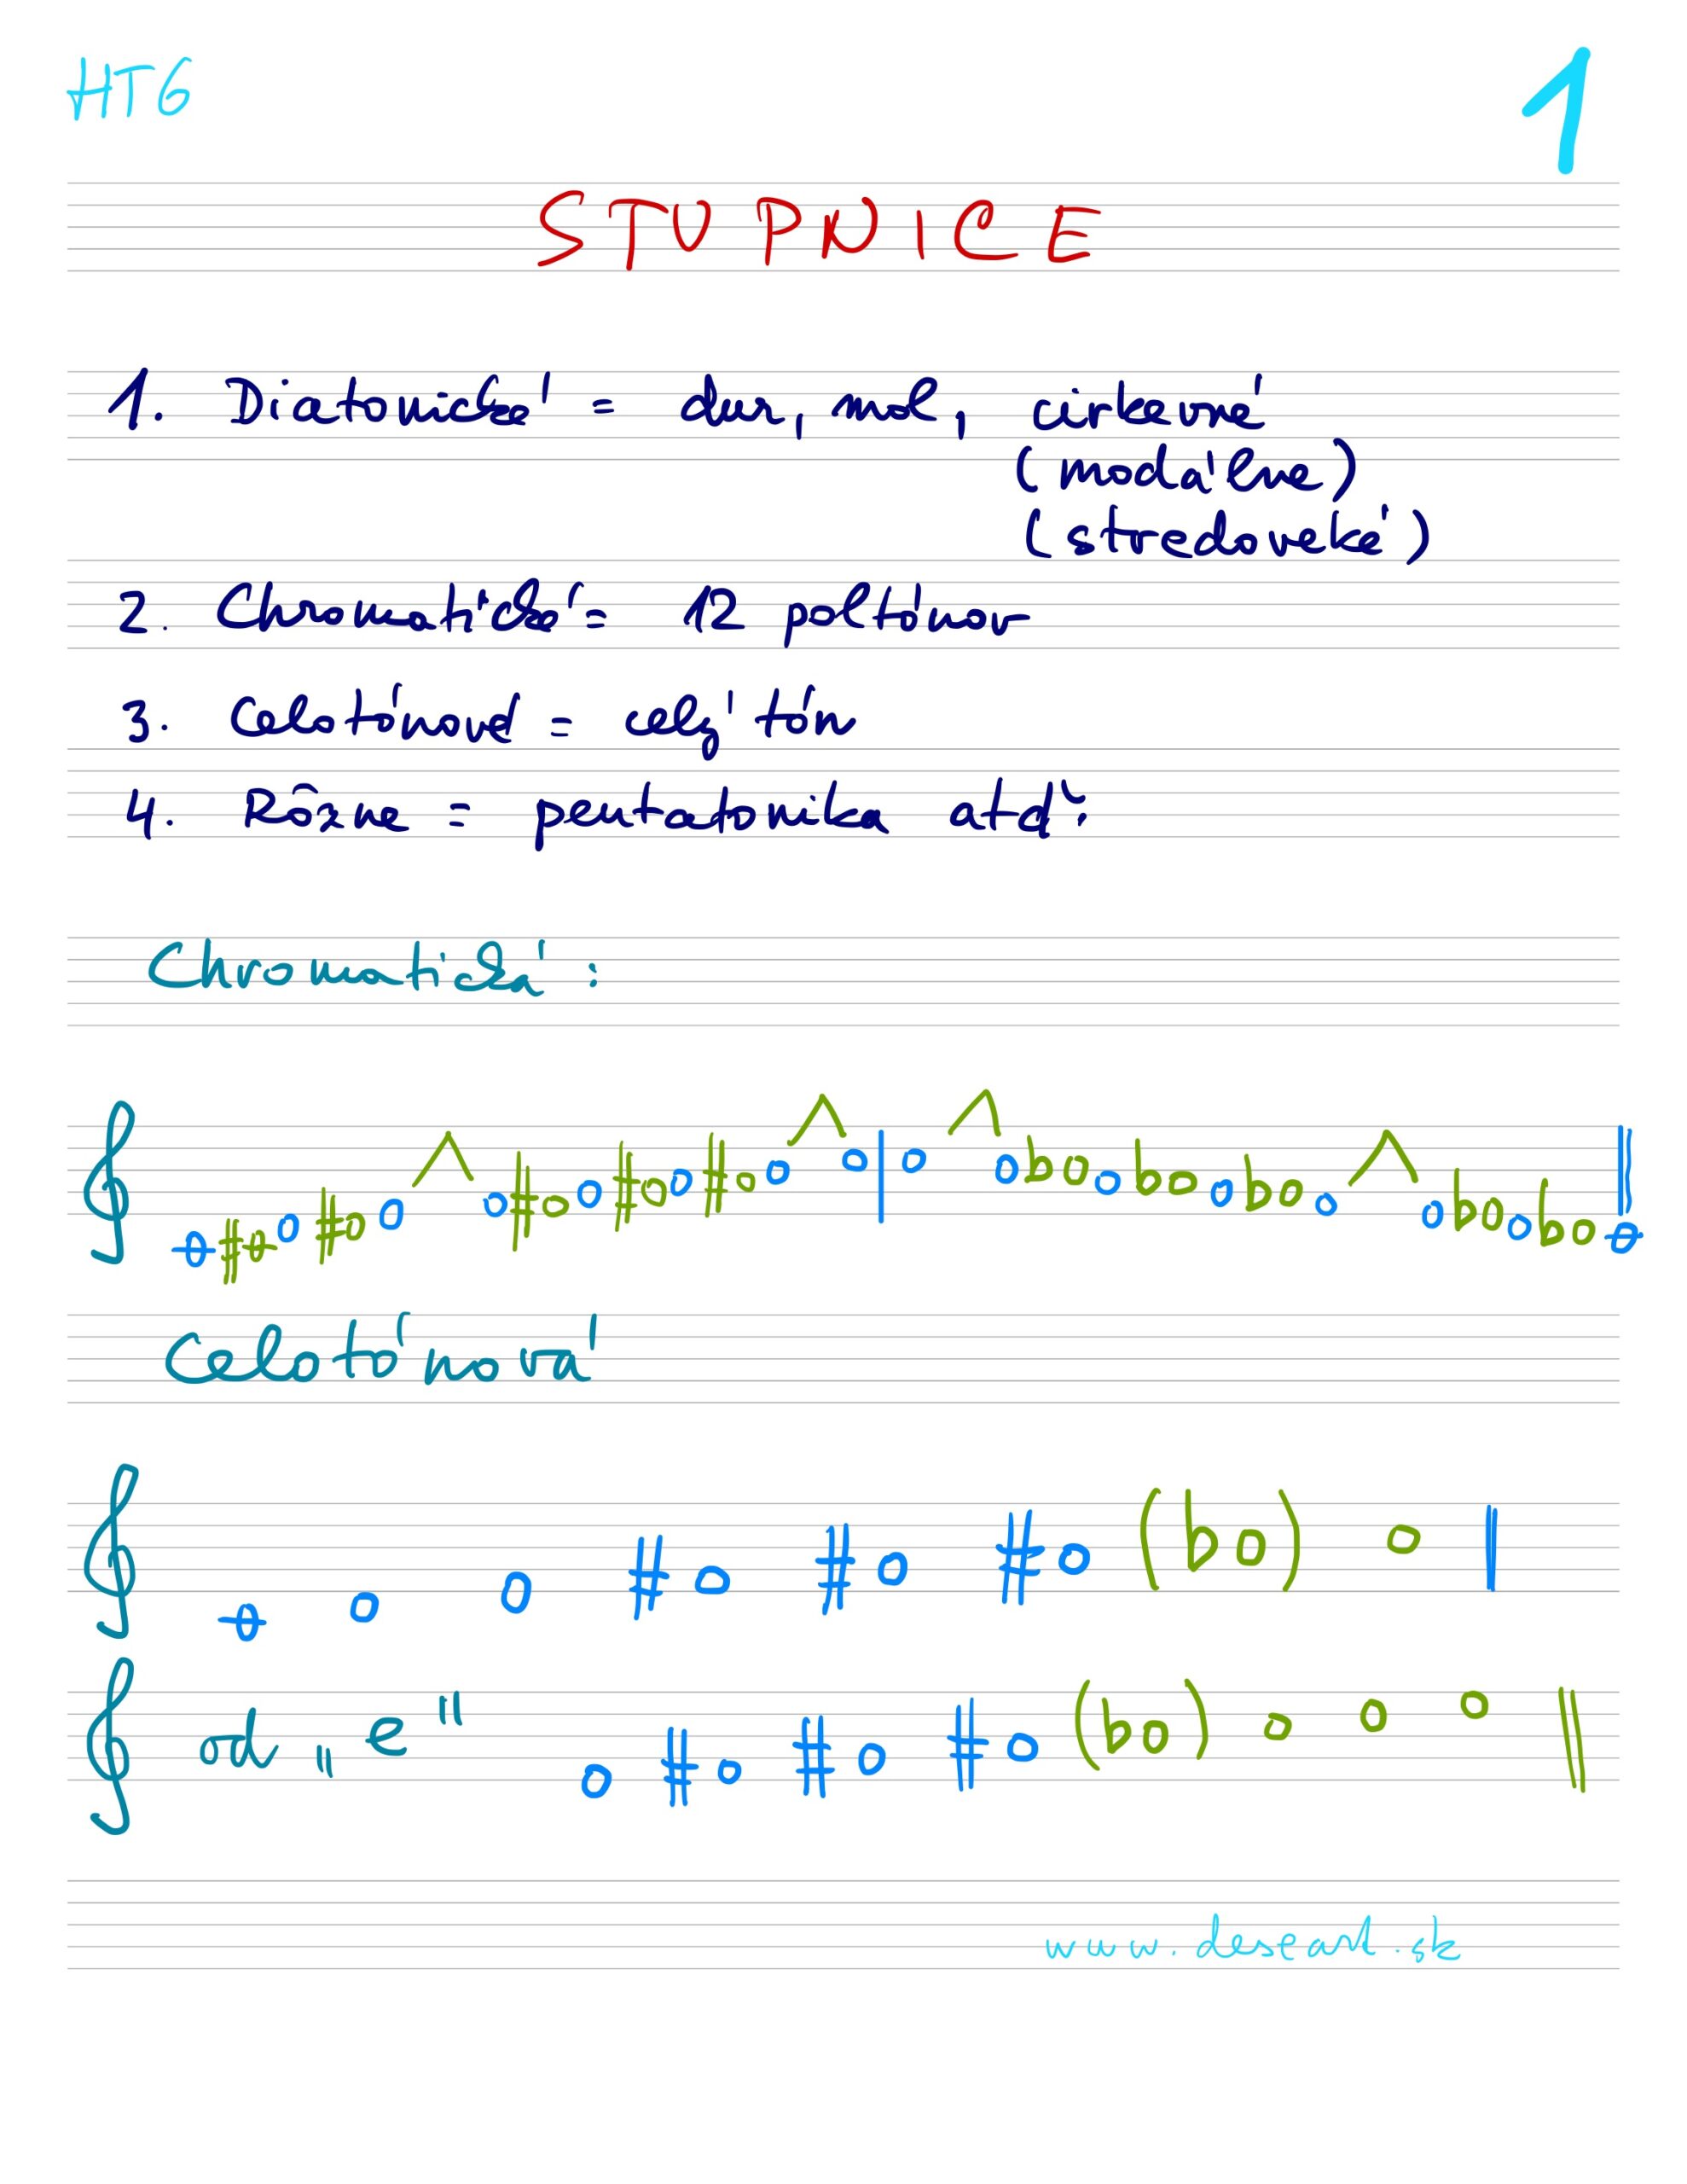 HT6
1
STUPNICE
1. Diatonická = dur, mol, cirkevné
(modálne)
(stredoveké)
2. Chromatická = 12 poltónov
3. Celotónová = celý tón
4. Rôzne = pentatonika atď.
Chromatická:
Celotónová
od „e"